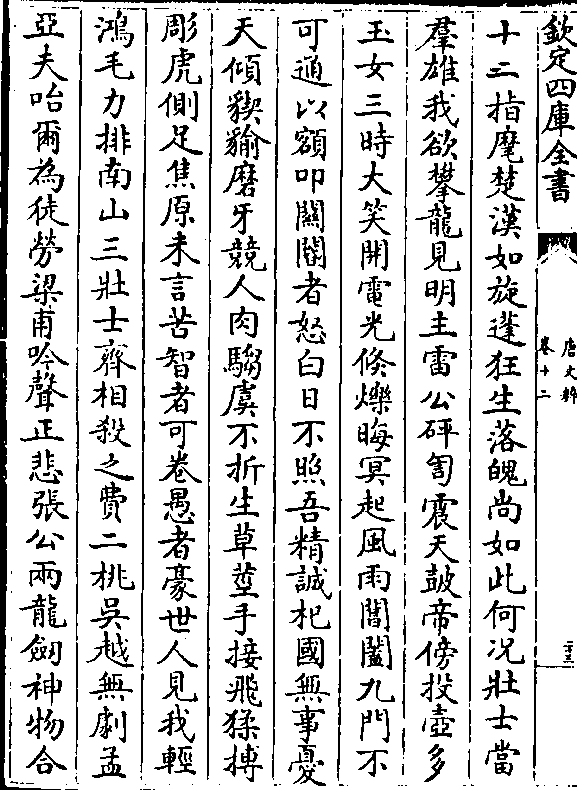 欽定四庫全書
唐文粹
卷十二
二十三
十二指麾楚漢如旋蓬狂生落魄尚如此何况壯士當
羣雄我欲攀龍見明主雷公砰訇震天鼓帝傍投壺多
玉女三時大笑開電光倐爍晦冥起風雨閶闔九門不
可通以額叩關閽者怒白日不照吾精誠杞國無事憂
天傾猰貐磨牙競人肉騶虞不折生草莖手接飛猱搏
彫虎側足焦原未言苦智者可卷愚者豪世人見我輕
鴻毛力排南山三壯士齊相殺之費二桃吳越無劇孟
亞夫咍爾為徒勞梁甫吟聲正悲張公兩龍劒神物合